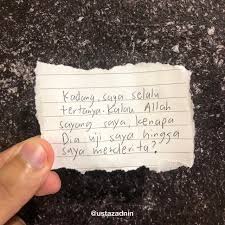 Kadang, saya selalu
tertanya. Kalau Allah
sayang saya, kenapa
Dia uji saya hingga
saya menderita?
@ustazadnin